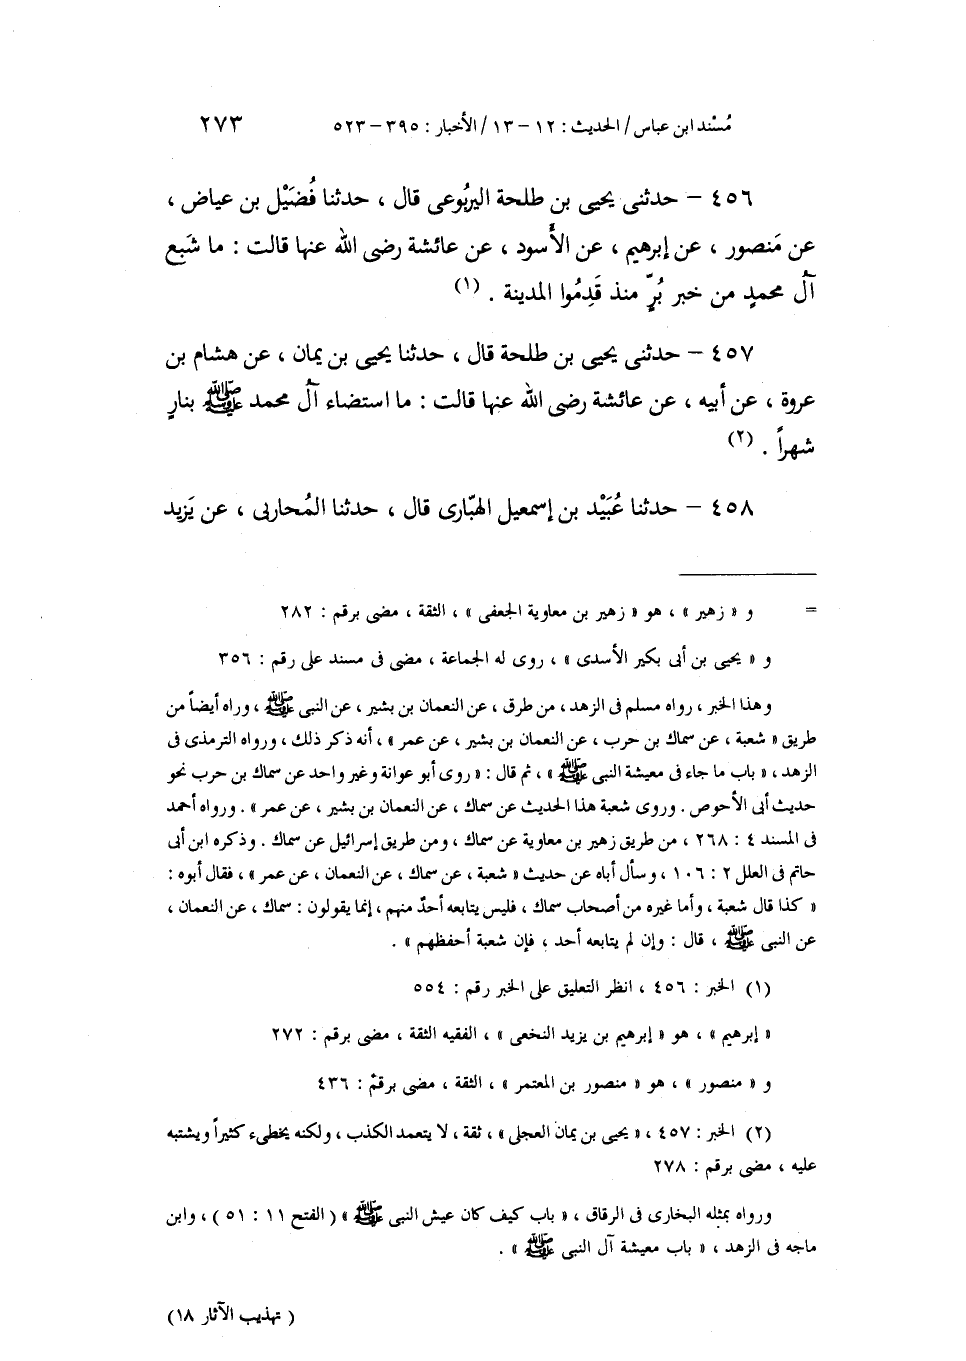 مُسْند ابن عباس / الحديث : ١٢ - ١٣ / الأخبار : ٣٩٥ - ٥٢٣ ٢٧٣
٤٥٦ - حدثنى يحيى بن طلحة اليربُوعى قال ، حدثنا فُضَيْل بن عياض ،
عن مَنصور ، عن إبرهيم ، عن الأَسود ، عن عائشة رضى الله عنها قالت : ما شَبِع
آلُ محمدٍ من خبر بُرٍّ منذ قَدِمُوا المدينة . (١)
٤٥٧ - حدثنى يحيى بن طلحة قال ، حدثنا يحيى بن يمان ، عن هشام بن
عروة ، عن أبيه ، عن عائشة رضى الله عنها قالت : ما استضاء آلُ محمد ﷺ بنارٍ
شهراً . (٢)
٤٥٨ - حدثنا عُبَيْد بن إسمعيل الهبّارى قال ، حدثنا المُحاربى ، عن يَزيد
= و « زهير » ، هو « زهير بن معاوية الجعفى » ، الثقة ، مضى برقم : ٢٨٢
و « يحيى بن أبى بكير الأسدى » ، روى له الجماعة ، مضى فى مسند على رقم : ٣٥٦
وهذا الخبر ، رواه مسلم فى الزهد ، من طرق ، عن النعمان بن بشير ، عن النبى ﷺ ، وراه أيضاً من
طريق « شعبة ، عن سماك بن حرب ، عن النعمان بن بشير ، عن عمر » ، أنه ذكر ذلك ، ورواه الترمذى فى
الزهد ، « باب ما جاء فى معيشة النبى ﷺ » ، ثم قال : « روى أبو عوانة وغير واحد عن سماك بن حرب نحو
حديث أبى الأحوص . وروى شعبة هذا الحديث عن سماك ، عن النعمان بن بشير ، عن عمر » . ورواه أحمد
فى المسند ٤ : ٢٦٨ ، من طريق زهير بن معاوية عن سماك ، ومن طريق إسرائيل عن سماك . وذكره ابن أبى
حاتم فى العلل ٢ : ١٠٦ ، وسأل أباه عن حديث « شعبة ، عن سماك ، عن النعمان ، عن عمر » ، فقال أبوه :
« كذا قال شعبة ، وأما غيره من أصحاب سماك ، فليس يتابعه أحدٌ منهم ، إنما يقولون : سماك ، عن النعمان ،
عن النبى ﷺ ، قال : وإن لم يتابعه أحد ، فإن شعبة أحفظهم » .
(١) الخبر : ٤٥٦ ، انظر التعليق على الخبر رقم : ٥٥٤
« إبرهيم » ، هو « إبرهيم بن يزيد النخعى » ، الفقيه الثقة ، مضى برقم : ٢٧٢
و « منصور » ، هو « منصور بن المعتمر » ، الثقة ، مضى برقم : ٤٣٦
(٢) الخبر : ٤٥٧ ، « يحيى بن يمان العجلى » ، ثقة ، لا يتعمد الكذب ، ولكنه يخطىء كثيراً ويشتبه
عليه ، مضى برقم : ٢٧٨
ورواه بمثله البخارى فى الرقاق ، « باب كيف كان عيش النبى ﷺ » ( الفتح ١١ : ٥١ ) ، وابن
ماجه فى الزهد ، « باب معيشة آل النبى ﷺ » .
( تهذيب الآثار ١٨ )